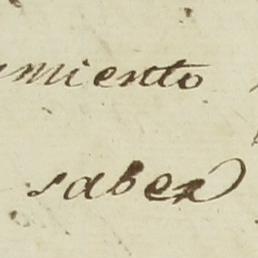 miento
saber